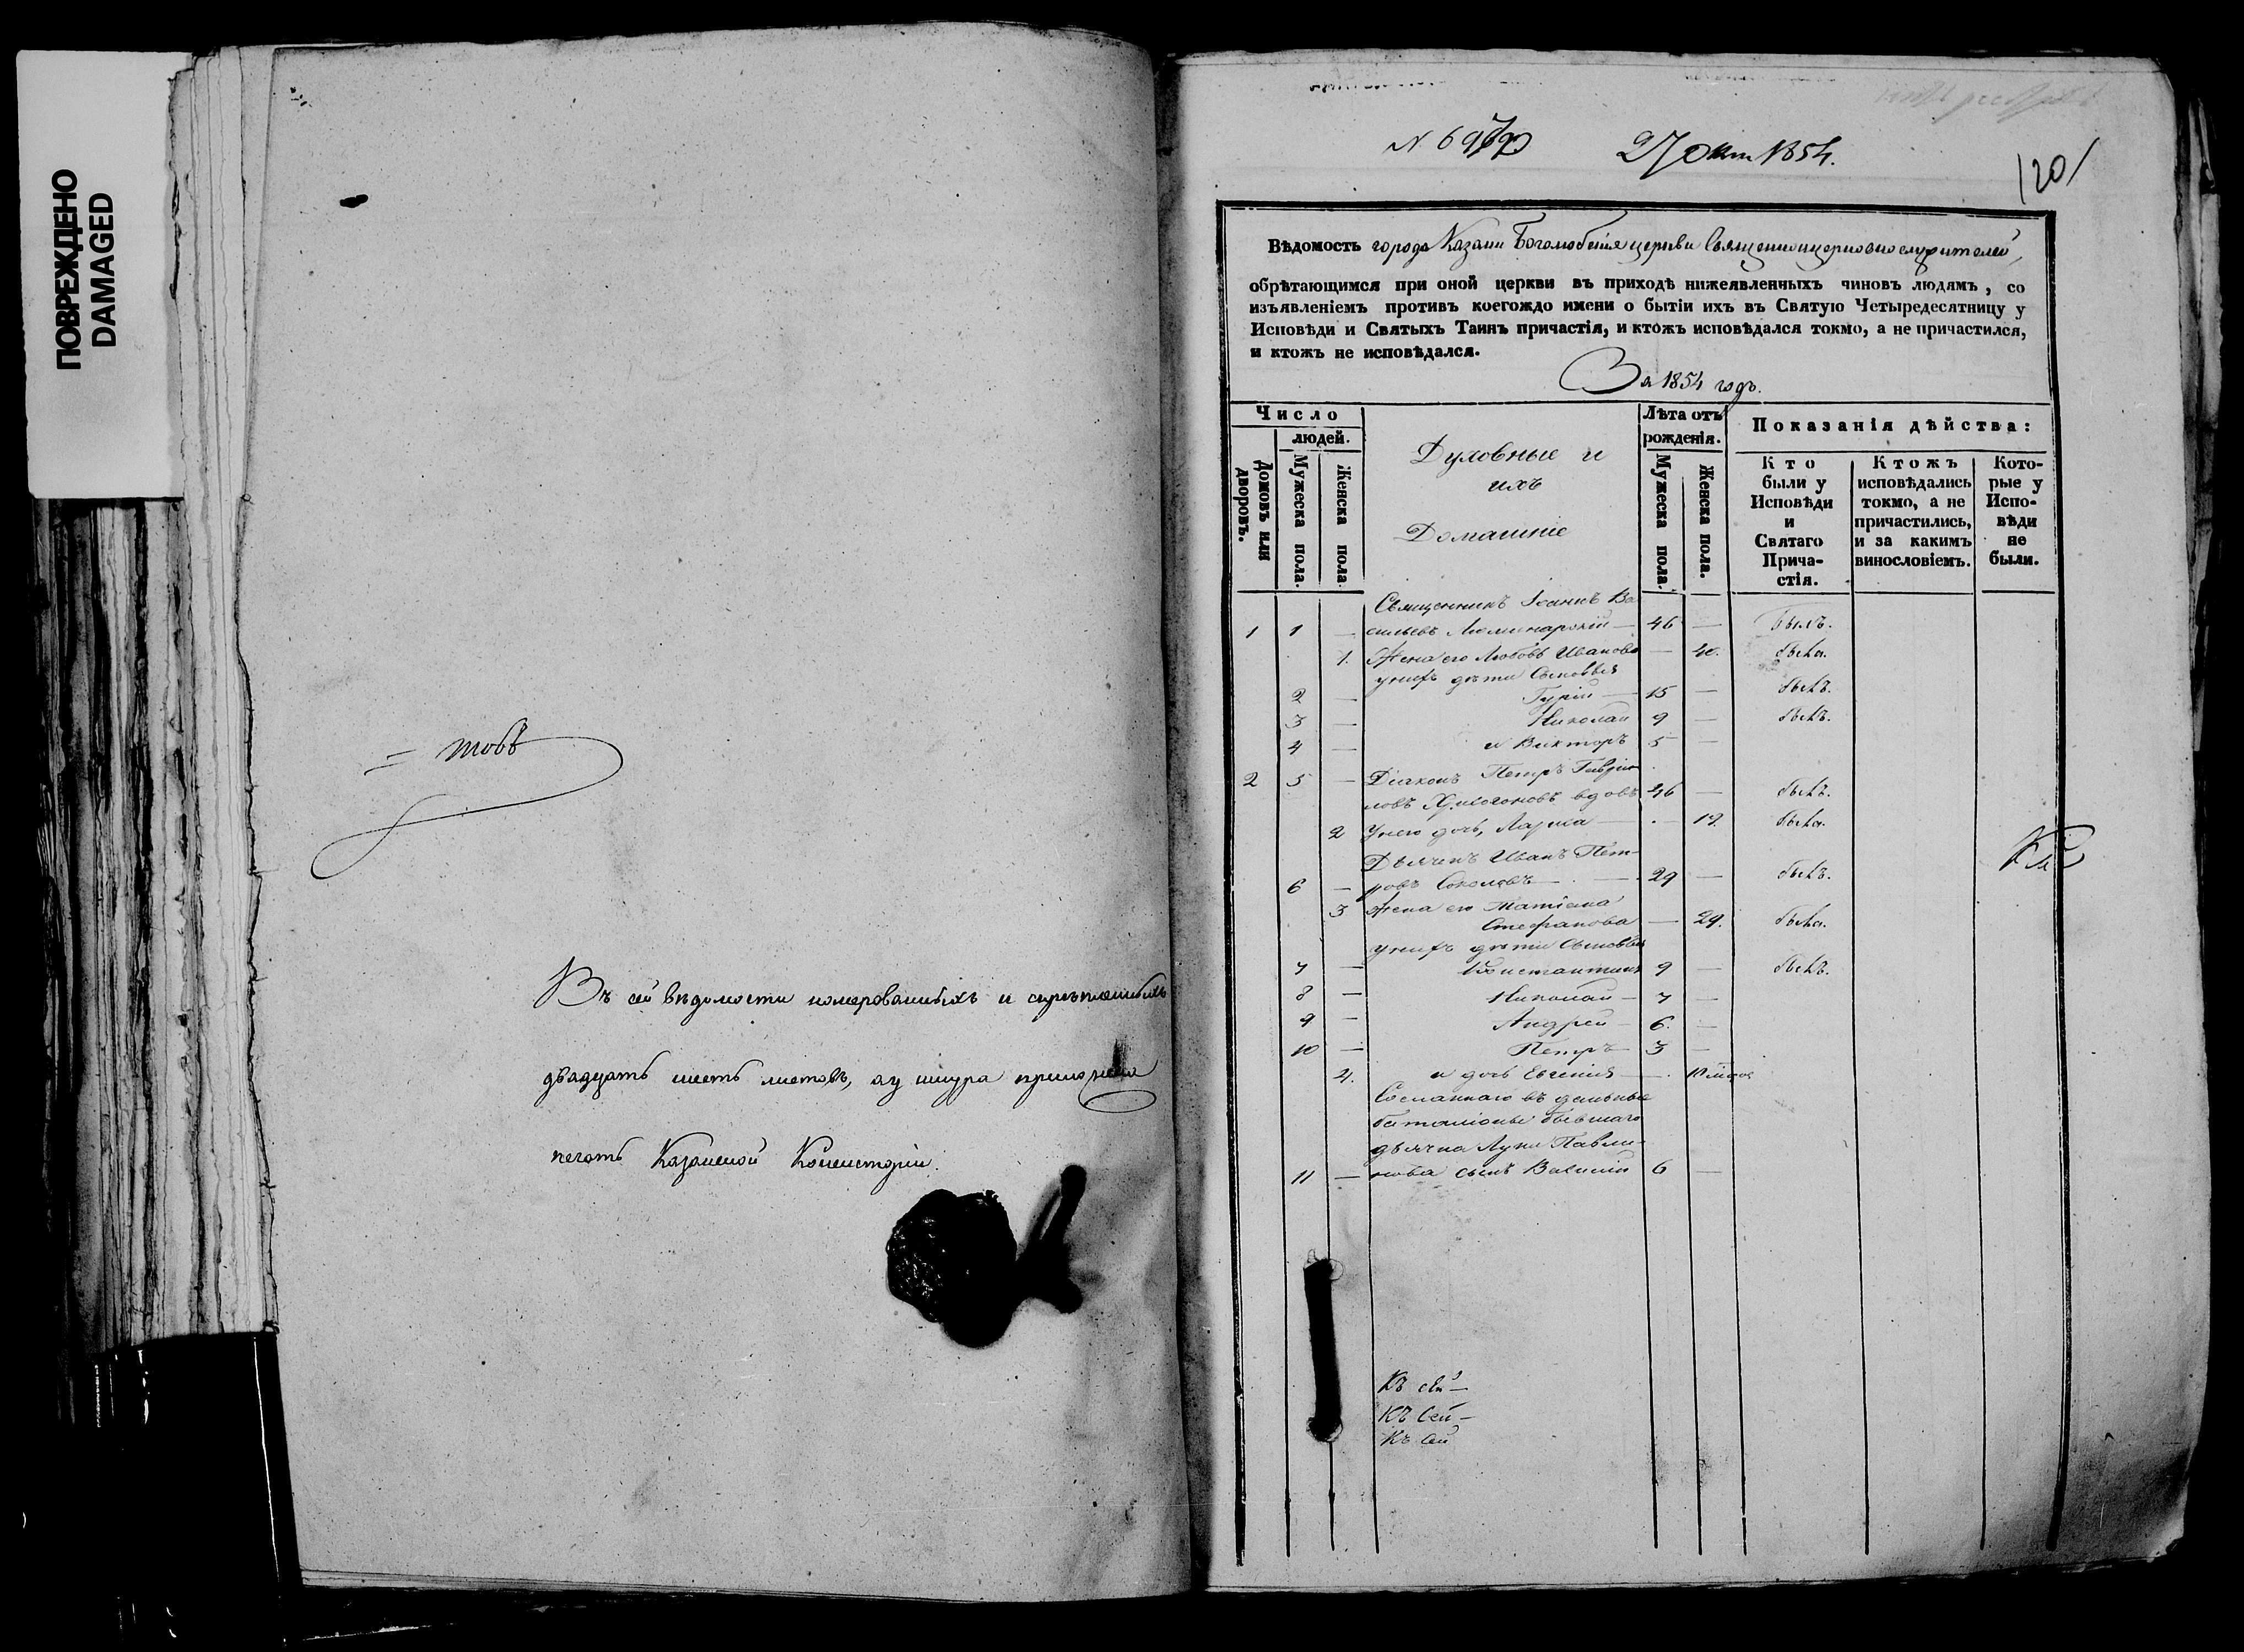 ПОВРЕЖДЕНО
DAMAGED
= товъ
Въ сей вѣдомости номерованныхъ и скрѣпленныхъ
двадцать шесть листовъ, а у шнура приложена
печать Казанской Консисторіи.
27 Окт 1854.
120
Вѣдомость города Казани Боголюбскія церкви Священноицерковнослужителей,
обрѣтающимся при оной церкви въ приходѣ нижеявленныхъ чиновъ людямъ, со
изъявленіемъ противъ коегождо имени о бытіи ихъ въ Святую Четыредесятницу у
Исповѣди и Святыхъ Таинъ причастія, и ктожъ исповѣдался токмо, а не причастился,
и ктожъ не исповѣдался.
За 1854 годъ.
Число
людей.
Домовъ или дворовъ.
Мужеска пола.
Женска пола.
Духовные и
ихъ
Домашніе
Лѣта отъ
рожденія.
Мужеска пола.
Женска пола.
Показанія дѣйства:
Кто
были у
Исповѣди
и
Святаго
Прича-
стія.
Ктожъ
исповѣдались
токмо, а не
причастились,
и за какимъ
винословіемъ.
Кото-
рые у
Испо-
вѣди
не
были.
Священникъ Іоаннъ Ва
1 1 — сильевъ Люминарскій — 46 — былъ.
1. Жена его Любовь Иванова — 40. была.
у нихъ дѣти Сыновья
2 — Гурій — 15 — былъ.
3 — Николай 9 — былъ.
4 — и Викторъ 5 —
2 5 — Діаконъ Петръ Гаврі
ловъ вдовъ 46 — былъ.
2 У него дочь, Лариса — 19. была.
Дьячекъ Иванъ Пет-
6 — ровъ Соколовъ — 29 — былъ.
3 Жена его Татіана
Стефанова — 29. была.
У нихъ дѣти Сыновья
7 — Константинъ 9 — былъ.
8 — Николай — 7 —
9 — Андрей — 6. —
10 — Петръ — 3 —
4. и дочь Евгенія —
Сосланнаго въ дальные
баталіоны бывшаго
дьячка Луки Павли-
11 — нова сынъ Василій 6 —
Къ сей —
Къ сей —
Къ сей